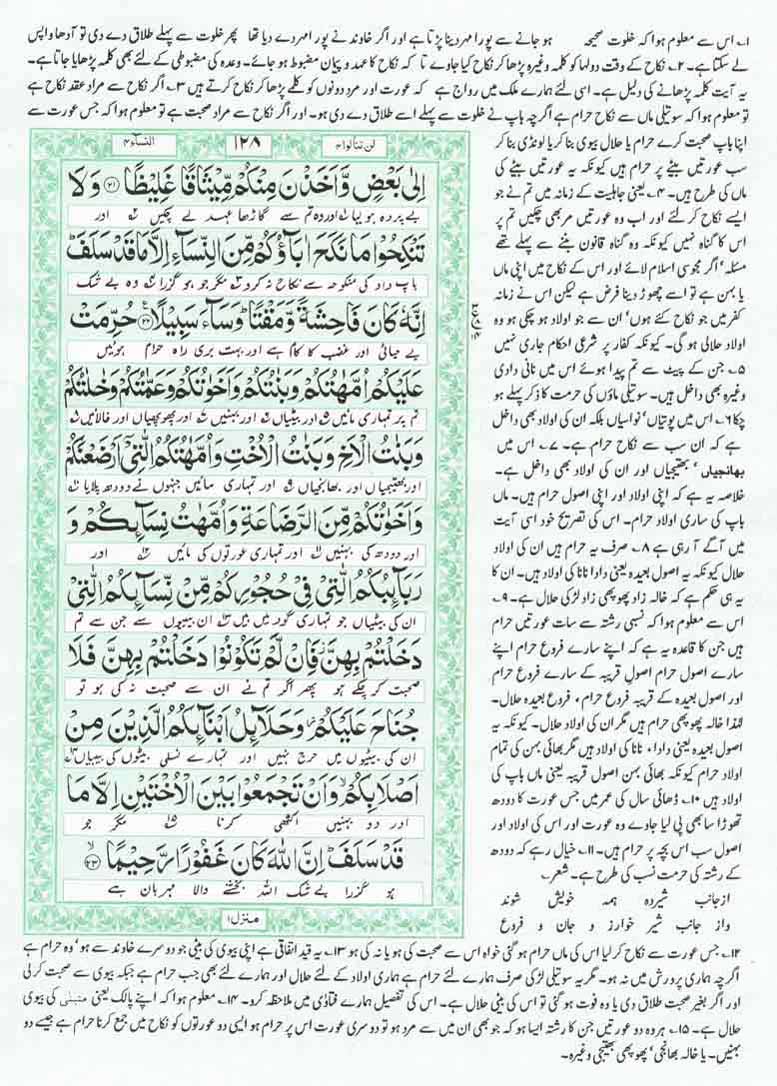 ۱۔ اس سے معلوم ہوا کہ خلوت صحیحہ ہو جانے سے پورا مہر دینا پڑتا ہے اور اگر خاوند نے پورا مہر دے دیا تھا پھر خلوت سے پہلے طلاق دے دی تو آدھا واپس
لے سکتا ہے۔ ۲۔ نکاح کے وقت دولہا کو کلمہ وغیرہ پڑھا کر نکاح کیا جاوے تا کہ نکاح کا عہد و پیمان مضبوط ہو جائے۔ وعدہ کی مضبوطی کے لئے بھی کلمہ پڑھایا جاتا ہے۔
یہ آیت کلمہ پڑھانے کی دلیل ہے۔ اسی لئے ہمارے ملک میں رواج ہے کہ عورت اور مرد دونوں کو کلمے پڑھا کر نکاح کرتے ہیں ۳۔ اگر نکاح سے مراد عقد نکاح ہے
تو معلوم ہوا کہ سوتیلی ماں سے نکاح حرام ہے اگرچہ باپ نے خلوت سے پہلے اسے طلاق دے دی ہو۔ اور اگر نکاح سے مراد صحبت ہے تو معلوم ہوا کہ جس عورت سے
اپنا باپ صحبت کرے حرام یا حلال بیوی بنا کر یا لونڈی بنا کر
سب عورتیں بیٹے پر حرام ہیں کیونکہ یہ عورتیں بیٹے کی
ماں کی طرح ہیں۔ ۴۔ یعنی جاہلیت کے زمانہ میں تم نے جو
ایسے نکاح کر لئے اور اب وہ عورتیں مر بھی چکیں تم پر
اس کا گناہ نہیں کیونکہ وہ گناہ قانون بننے سے پہلے تھے
مسئلہ، اگر مجوسی اسلام لائے اور اس کے نکاح میں اپنی ماں
یا بہن ہے تو اسے چھوڑ دینا فرض ہے لیکن اس نے زمانہ
کفر میں جو نکاح کئے ہوں، ان سے جو اولاد ہو چکی ہو وہ
اولاد حلالی ہو گی۔ کیونکہ کفار پر شرعی احکام جاری نہیں
۵۔ جن کے پیٹ سے تم پیدا ہوئے اس میں نانی دادی
وغیرہ بھی داخل ہیں۔ سوتیلی ماؤں کی حرمت کا ذکر پہلے ہو
چکا ۶۔ اس میں پوتیاں، نواسیاں بلکہ ان کی اولاد بھی داخل
ہے کہ ان سب سے نکاح حرام ہے۔ ۷۔ اس میں
بھانجیاں، بھتیجیاں اور ان کی اولاد بھی داخل ہے۔
خلاصہ یہ ہے کہ اپنی اولاد اور اپنی اصول حرام ہیں۔ ماں
باپ کی ساری اولاد حرام۔ اس کی تصریح خود اسی آیت
میں آگے آ رہی ہے ۸۔ صرف یہ حرام ہیں ان کی اولاد
حلال کیونکہ یہ اصول بعیدہ یعنی دادا نانا کی اولاد ہیں۔ ان کا
یہ ہی حکم ہے کہ خالہ زاد پھوپھی زاد لڑکی حلال ہے۔ ۹۔
اس سے معلوم ہوا کہ نسبی رشتہ سے سات عورتیں حرام
ہیں جن کا قاعدہ یہ ہے کہ اپنے سارے فروع حرام اپنے
سارے اصول حرام اصول قریبہ کے سارے فروع حرام
اور اصول بعیدہ کے قریبہ فروع حرام، فروع بعیدہ حلال۔
لہٰذا خالہ پھوپھی حرام ہیں مگر ان کی اولاد حلال۔ کیونکہ یہ
اصول بعیدہ یعنی دادا، نانا کی اولاد ہیں مگر بھائی بہن کی تمام
اولاد حرام کیونکہ بھائی بہن اصول قریبہ یعنی ماں باپ کی
اولاد ہیں ۱۰۔ ڈھائی سال کی عمر میں جس عورت کا دودھ
تھوڑا سا بھی پی لیا جاوے وہ عورت اور اس کی اولاد اور
اصول سب اس بچہ پر حرام ہیں۔ ۱۱۔ خیال رہے کہ دودھ
کے رشتہ کی حرمت نسب کی طرح ہے۔ شعر
از جانب شیردہ ہمہ خویش شوند
واز جانب شیر خوار زو جان و فروع
لن تنالوا ۴ ۱۲۸ النساء ۴
اِلٰى بَعْضٍ وَّاَخَذْنَ مِنْكُمْ مِّيْثَاقًا غَلِيْظًا ﴿۲۱﴾ وَلَا
بے پردہ ہو لیا اور وہ تم سے گاڑھا عہد لے چکیں اور
تَنْكِحُوْا مَا نَكَحَ اٰبَآؤُكُمْ مِّنَ النِّسَآءِ اِلَّا مَا قَدْ سَلَفَ
باپ دادا کی منکوحہ سے نکاح نہ کرو مگر جو ہو گزرا وہ بے شک
اِنَّهٗ كَانَ فَاحِشَةً وَّمَقْتًا وَسَآءَ سَبِيْلًا ﴿۲۲﴾ حُرِّمَتْ
بے حیائی اور غضب کا کام ہے اور بہت بری راہ حرام ہوئیں
عَلَيْكُمْ اُمَّهٰتُكُمْ وَبَنٰتُكُمْ وَاَخَوٰتُكُمْ وَعَمّٰتُكُمْ وَخٰلٰتُكُمْ
تم پر تمہاری مائیں اور بیٹیاں اور بہنیں اور پھوپھیاں اور خالائیں
وَبَنٰتُ الْاَخِ وَبَنٰتُ الْاُخْتِ وَاُمَّهٰتُكُمُ الّٰتِيْٓ اَرْضَعْنَكُمْ
اور بھتیجیاں اور بھانجیاں اور تمہاری مائیں جنہوں نے دودھ پلایا
وَاَخَوٰتُكُمْ مِّنَ الرَّضَاعَةِ وَاُمَّهٰتُ نِسَآئِكُمْ وَ
اور دودھ کی بہنیں اور تمہاری عورتوں کی مائیں اور
رَبَآئِبُكُمُ الّٰتِيْ فِيْ حُجُوْرِكُمْ مِّنْ نِّسَآئِكُمُ الّٰتِيْ
ان کی بیٹیاں جو تمہاری گود میں ہیں ان بیبیوں سے جن سے تم
دَخَلْتُمْ بِهِنَّ فَاِنْ لَّمْ تَكُوْنُوْا دَخَلْتُمْ بِهِنَّ فَلَا
صحبت کر چکے ہو پھر اگر تم نے ان سے صحبت نہ کی ہو تو
جُنَاحَ عَلَيْكُمْ وَحَلَآئِلُ اَبْنَآئِكُمُ الَّذِيْنَ مِنْ
ان کی بیٹیوں میں حرج نہیں اور تمہارے نسلی بیٹوں کی بیبیاں
اَصْلَابِكُمْ وَاَنْ تَجْمَعُوْا بَيْنَ الْاُخْتَيْنِ اِلَّا مَا
اور دو بہنیں اکٹھی کرنا مگر جو
قَدْ سَلَفَ اِنَّ اللّٰهَ كَانَ غَفُوْرًا رَّحِيْمًا ﴿۲۳﴾
ہو گزرا بے شک اللہ بخشنے والا مہربان ہے
منزل ۱
۱۲۔ جس عورت سے نکاح کر لیا اس کی ماں حرام ہو گئی خواہ اس سے صحبت کی ہو یا نہ کی ہو ۱۳۔ یہ قید اتفاقی ہے اپنی بیوی کی بیٹی جو دوسرے خاوند سے ہو، وہ حرام ہے
اگرچہ ہماری پرورش میں نہ ہو۔ مگر یہ سوتیلی لڑکی صرف ہمارے لئے حرام ہے ہماری اولاد کے لئے حلال اور ہمارے لئے بھی جب حرام ہے جبکہ بیوی سے صحبت کر لی
اور اگر بغیر صحبت طلاق دی یا وہ فوت ہو گئی تو اس کی بیٹی حلال ہے۔ اس کی تفصیل ہمارے فتاوٰی میں ملاحظہ کرو۔ ۱۴۔ معلوم ہوا کہ اپنے پالک یعنی متبنٰی کی بیوی
حلال ہے۔ ۱۵۔ ہر وہ دو عورتیں جن کا رشتہ ایسا ہو کہ جو بھی ان میں سے مرد ہو تو دوسری عورت اس پر حرام ہو ایسی دو عورتوں کو نکاح میں جمع کرنا حرام ہے جیسے دو
بہنیں۔ یا خالہ بھانجی، پھوپھی بھتیجی وغیرہ۔